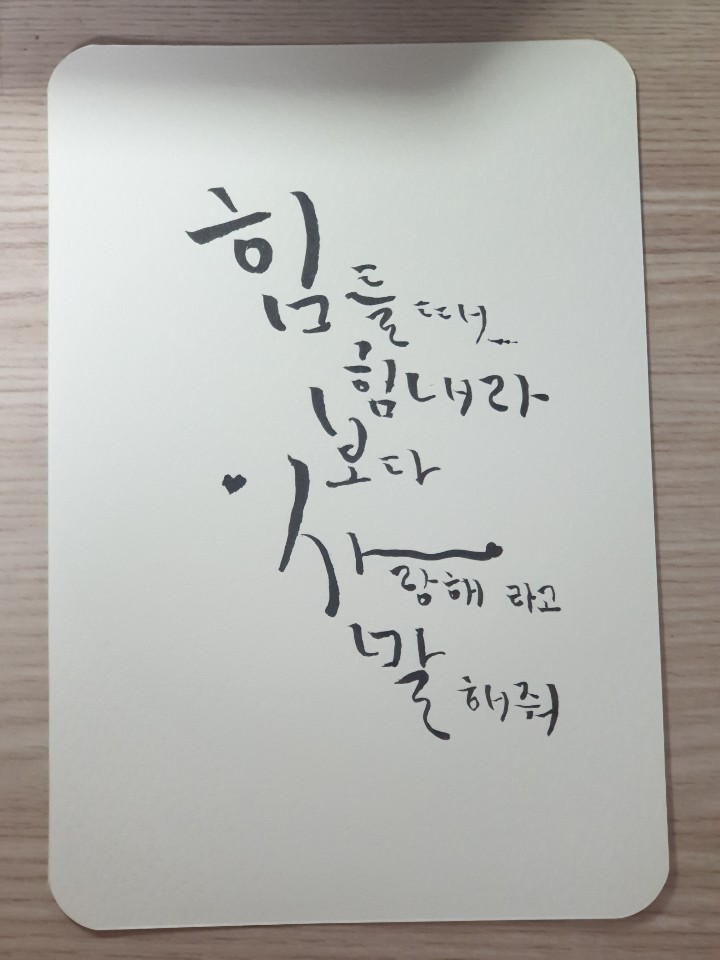 힘들때...
힘내라
보다
사랑해 라고
말해줘